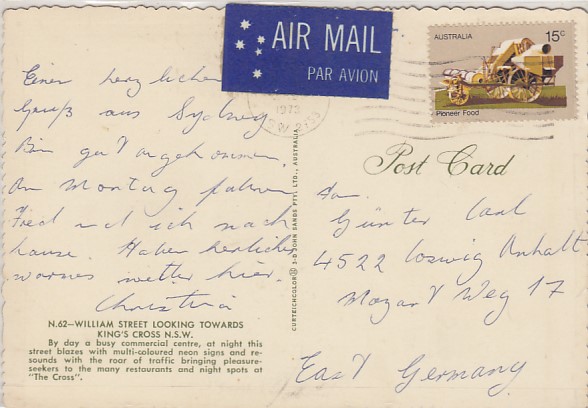 AIR MAIL
PAR AVION
AUSTRALIA 15c
Pioneer Food
1973
Einen herzlichen
Gruß aus Sydney
Bin gut angekommen.
Am Montag fahren
Fred und ich nach
hause. Haben herliches
warmes wetter hier.
Christina
N.62—WILLIAM STREET LOOKING TOWARDS
KING'S CROSS N.S.W.
By day a busy commercial centre, at night this
street blazes with multi-coloured neon signs and re-
sounds with the roar of traffic bringing pleasure-
seekers to the many restaurants and night spots at
"The Cross".
CURTEICHCOLOR® 3-D JOHN SANDS PTY. LTD., AUSTRALIA.
Post Card
An
Günter Carl
4522 Coswig Anhalt
Mozart Weg 17
East Germany